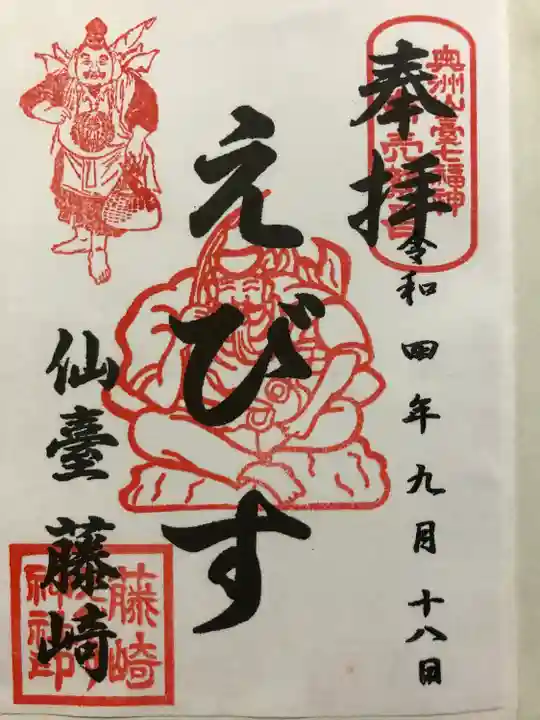 奉拝
奥州仙臺七福神
令和四年九月十八日
えびす
仙臺 藤崎
藤崎
神社印